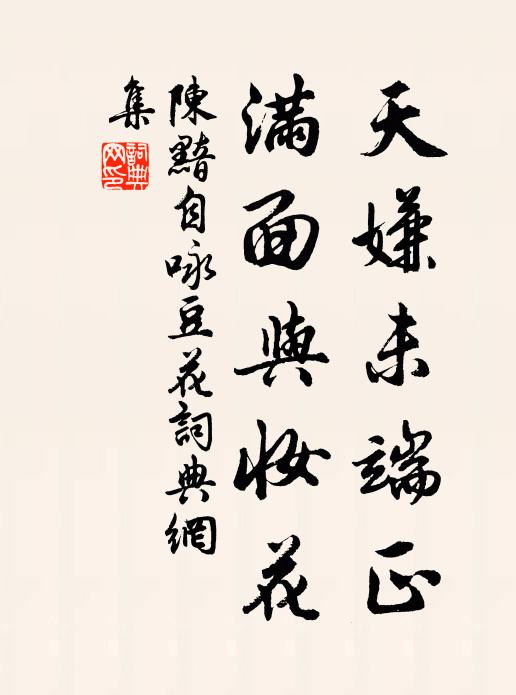 天嫌未端正
滿面與妝花
陳黯自咏豆花詞典網
集
詞典
网印